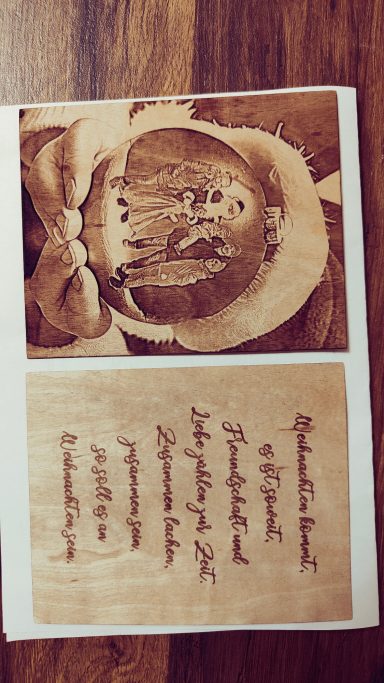 Weihnachten kommt,
es ist soweit,
Freundschaft und
Liebe zählen zur Zeit.
Zusammen lachen,
zusammen sein,
so soll es an
Weihnachten sein.